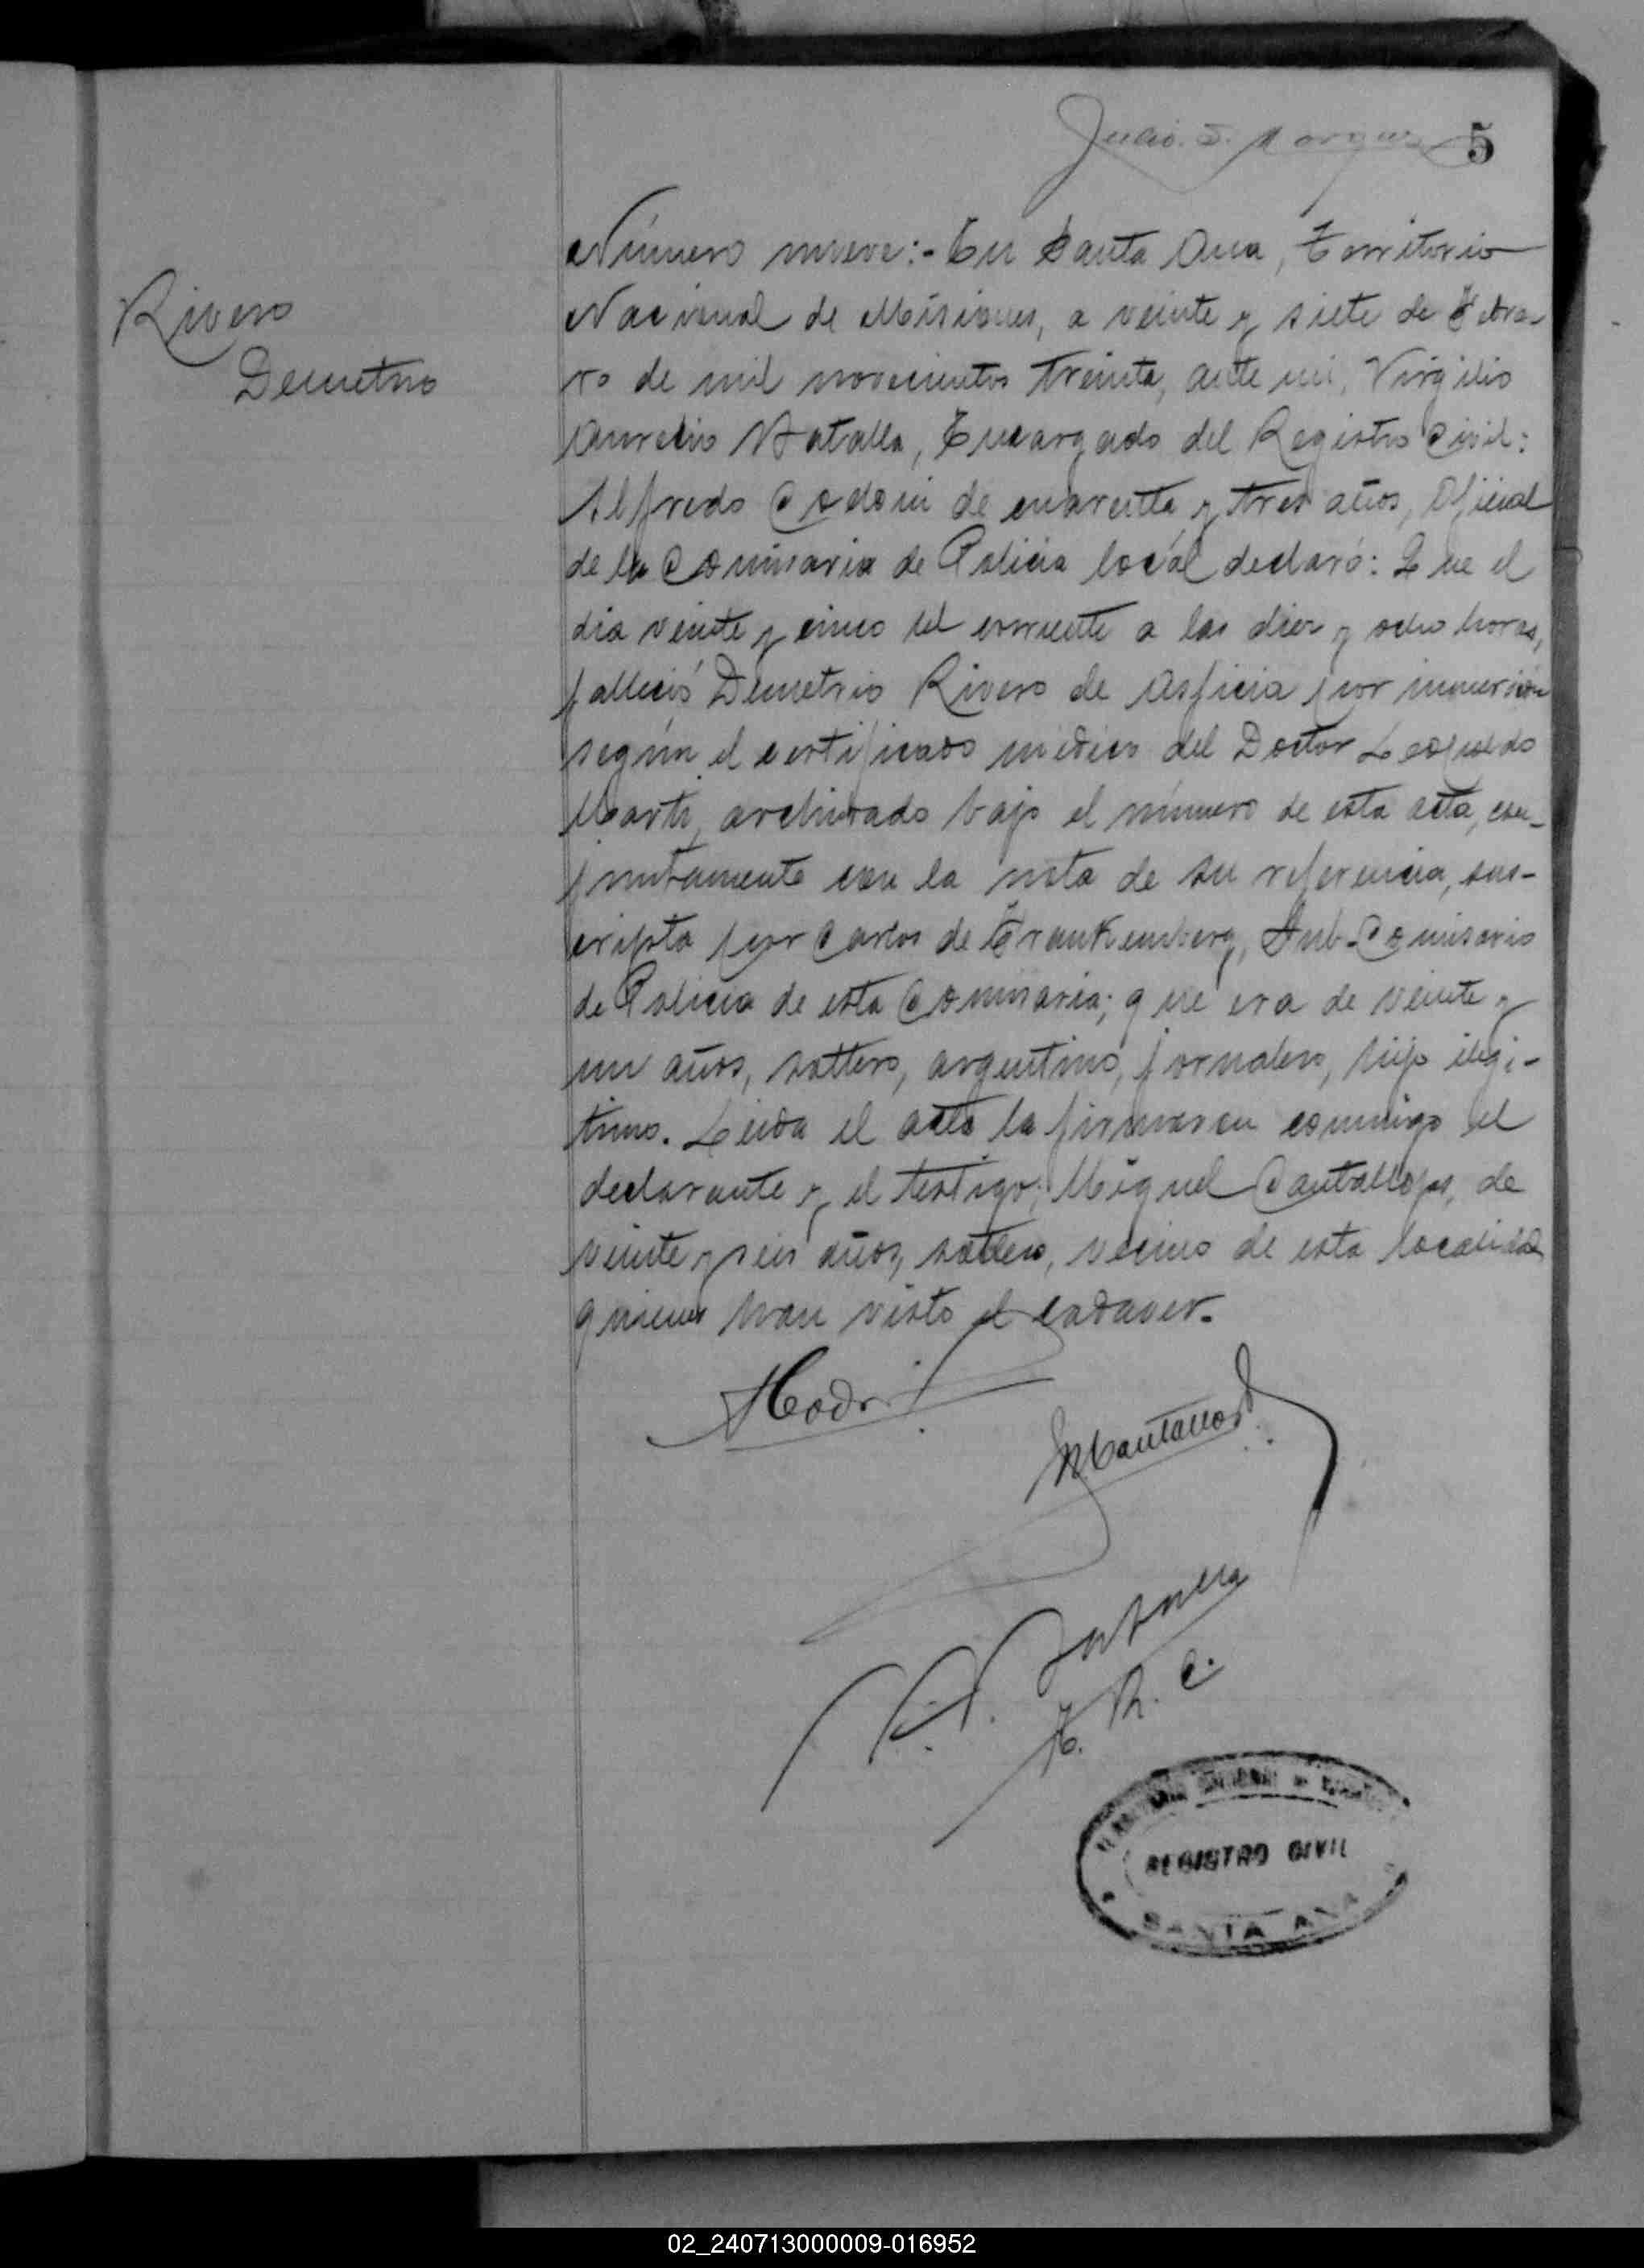 5
Rivero
Demetrio
Número nueve:- En Santa Ana, Territorio
Nacional de Misiones, a veinte y siete de Febre-
ro de mil novecientos treinta, ante mi, Virgilio
Aurelio Batalla, Encargado del Registro Civil:
Alfredo Codoni de cuarenta y tres años, Oficial
de la Comisaria de Policia local declaró: Que el
dia veinte y cinco del corriente a las diez y ocho horas,
falleció Demetrio Rivero de asficia por inmersión
según el certificado médico del Doctor Leopoldo
Marti, archivado bajo el número de esta acta, con-
juntamente con la nota de su referencia, sus-
cripta por Carlos de Frankemberg, Sub-Comisario
de Policia de esta Comisaria; que era de veinte y
un años, soltero, argentino, jornalero, hijo ilegi-
timo. Leida el acta la firmaron conmigo el
declarante y el testigo, Miguel Cantallops, de
veinte y seis años, soltero, vecino de esta localidad
quienes han visto el cadaver.
E. R. C.
REGISTRO CIVIL
SANTA ANA
02_240713000009-016952